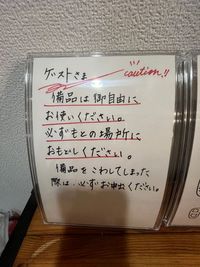 ゲストさま
caution!!
備品は御自由に
お使いください。
必ずもとの場所に
おもどしください。
備品をこわしてしまった
際は、必ずお申出ください。